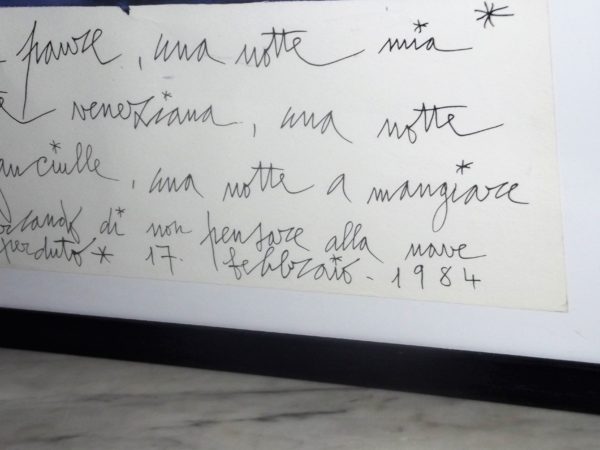 paure, una notte mia *
veneziana, una notte
anciulle, una notte a mangiare
ercando di non pensare alla nave
perduto * 17. febbraio - 1984